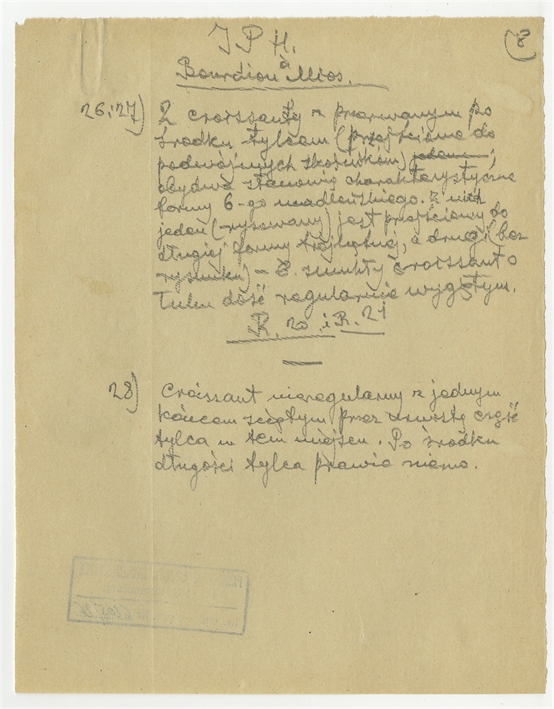 I P H. (8
Bourdiou à Mios.
26 i 27) 2 croissanty z przerwanym po
środku tylcem (przejściowe do
podwójnych skośników) jeden ;
obydwa stanowią charakterystyczne
formy 6-go madleńskiego. Z nich
jeden (rysowany) jest przejściowy do
długiej formy trójkątnej, a drugi (bez
rysunku) – b. smukły croissant o
łuku dość regularnie wygiętym.
R. 20 i R. 21
28) Croissant nieregularny z jednym
końcem ściętym przez część
tylca w tem miejscu. Po środku
długości tylca prawie niema.